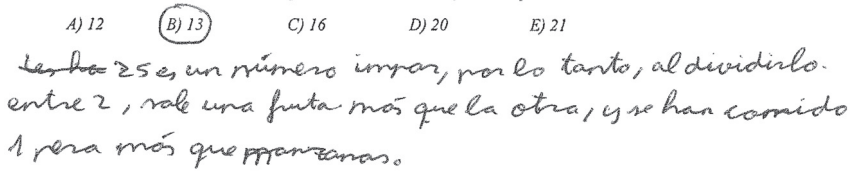 A) 12 B) 13 C) 16 D) 20 E) 21
25 es un número impar, por lo tanto, al dividirlo.
entre 2, sale una fruta más que la otra, y se han comido
1 pera más que manzanas.